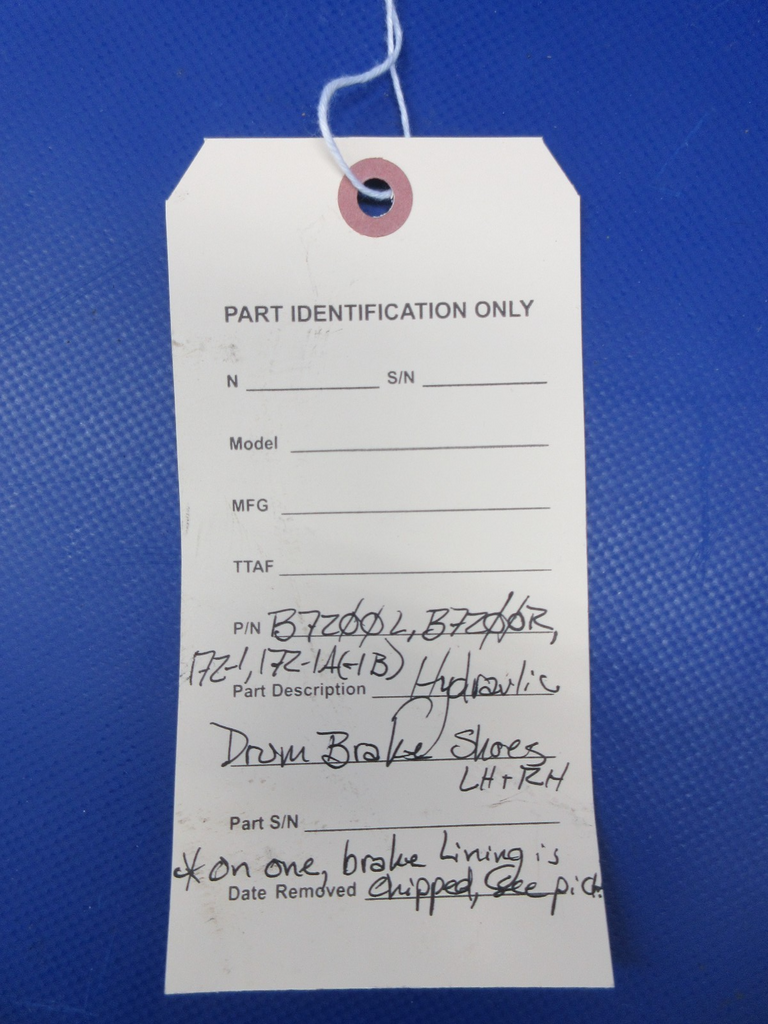 PART IDENTIFICATION ONLY
N ____________ S/N ____________
Model ____________
MFG ____________
TTAF ____________
P/N B7200L, B7200R,
172-1, 172-1A(-1B)
Part Description Hydraulic
Drum Brake Shoes
LH + RH
Part S/N ____________
* on one, brake Lining is
Date Removed chipped, See pict.